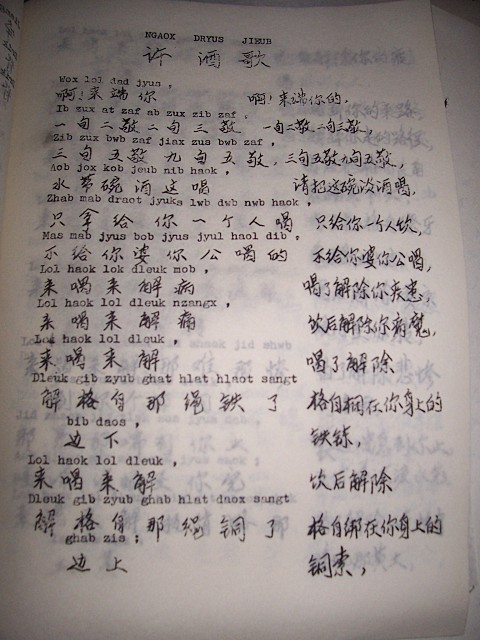 NGAOX DRYUS JIEUB
许酒歌
Wox lol dad jyus ,
啊!来端你 啊!来端你的,
Ib zux at zaf ab zux zib zaf ,
一旬二敬二旬三敬 一旬二敬二旬三敬,
Zib zux bwb zaf jiax zus bwb zaf ,
三旬五敬九旬五敬, 三旬五敬九旬五敬,
Aob jox kob jeub nib haok ,
水 碗酒这喝 请把这碗 酒喝,
Zhab mab draot jyuks lwb dwb nwb haok ,
只拿给你一个人喝 只给你一个人饮,
Mas mab jyus bob jyus jyul haol dib ,
不给你婆你公喝的 不给你婆你公喝,
Lol haok lok dleuk mob ,
来喝来解病 喝了解除你疾患,
Lol haok lol dleuk nzangx ,
来喝来解痛 饮后解除你病魔,
Lol haok lol dleuk ,
来喝来解 喝了解除
Dleuk gib zyub ghat hlat hlaot sangt
解格自那绳铁了 格自 在你身上的
bib daos ,
边下 铁 ,
Lol haok lol dleuk ,
来喝来解 饮后解除
Dleuk gib zyub ghab hlat daox sangt
解格自那绳铜了 格自绑在你身上的
ghab zis ;
边上 铜索,